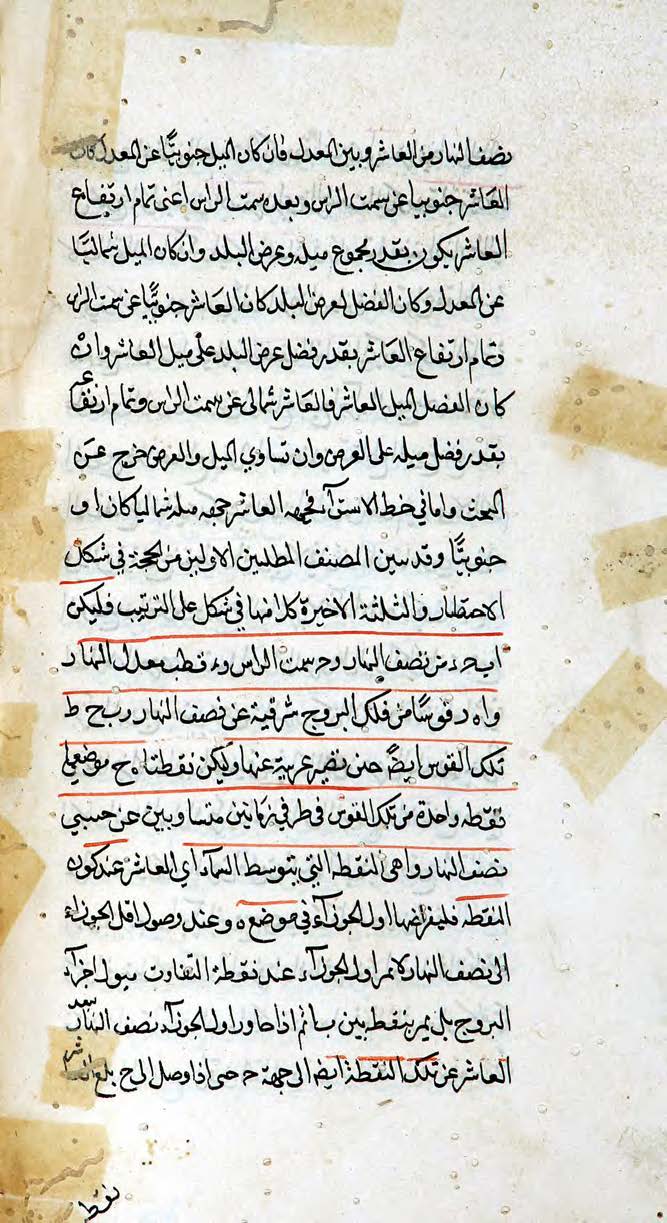 نصف النهار من العاشر وبين المعدل فان كان الميل جنوبيًّا عن المعدل كان
العاشر جنوبيا عن سمت الراس وبعده سمت الراس اعنى تمام ارتفاع
العاشر يكون بقدر مجموع ميله وعرض البلد وان كان الميل شماليًّا
عن المعدل وكان الفضل لعرض البلد كان العاشر جنوبيًّا عن سمت الراس
وتمام ارتفاع العاشر بقدر فضل عرض البلد على ميل العاشر وان
كان الفضل لميل العاشر فالعاشر شمالى عن سمت الراس وتمام ارتفاعه
بقدر فضل ميله على العرض وان تساوي الميل والعرض خرج عن
البحث واما في خط الاستوآء فجهه العاشر جهه ميله شماليا كان او
جنوبيًّا وقد بين المصنف المطلبين الاولين من الحجة في شكل
الاختصار والثلثة الاخيرة كلا منها في شكل على الترتيب فليكن
ا ب ح د من نصف النهار و ح سمت الراس و د قطب معدل النهار
و ا ه ر قوسًا من فلك البروج شرقية عن نصف النهار و ب ح ط
تلك القوس ايضًا حتى تصير غربية عنها وليكن نقطتا ه ح موضعي
نقطه واحدة من تلك القوس في طرفي زمانين متساويين عن جنبي
نصف النهار و ا هى النقطه التي يتوسط السمآء اي العاشر عند كون
النقطه فليفرضها اول الجوزآء في موضع ه وعند وصول اول الجوزاء
الى نصف النهار لا يمر اول الجوزآء عند نقطة ا لتفاوت ميول اجزآء
البروج بل يمر بنقط بين ب ا ثم اذا جاوز اول الجوزآء نصف النهار بعد
العاشر عن تلك النقطة ايضا الى جهة ح حتى اذا وصل الى ح بلغ العاشر
نقطه